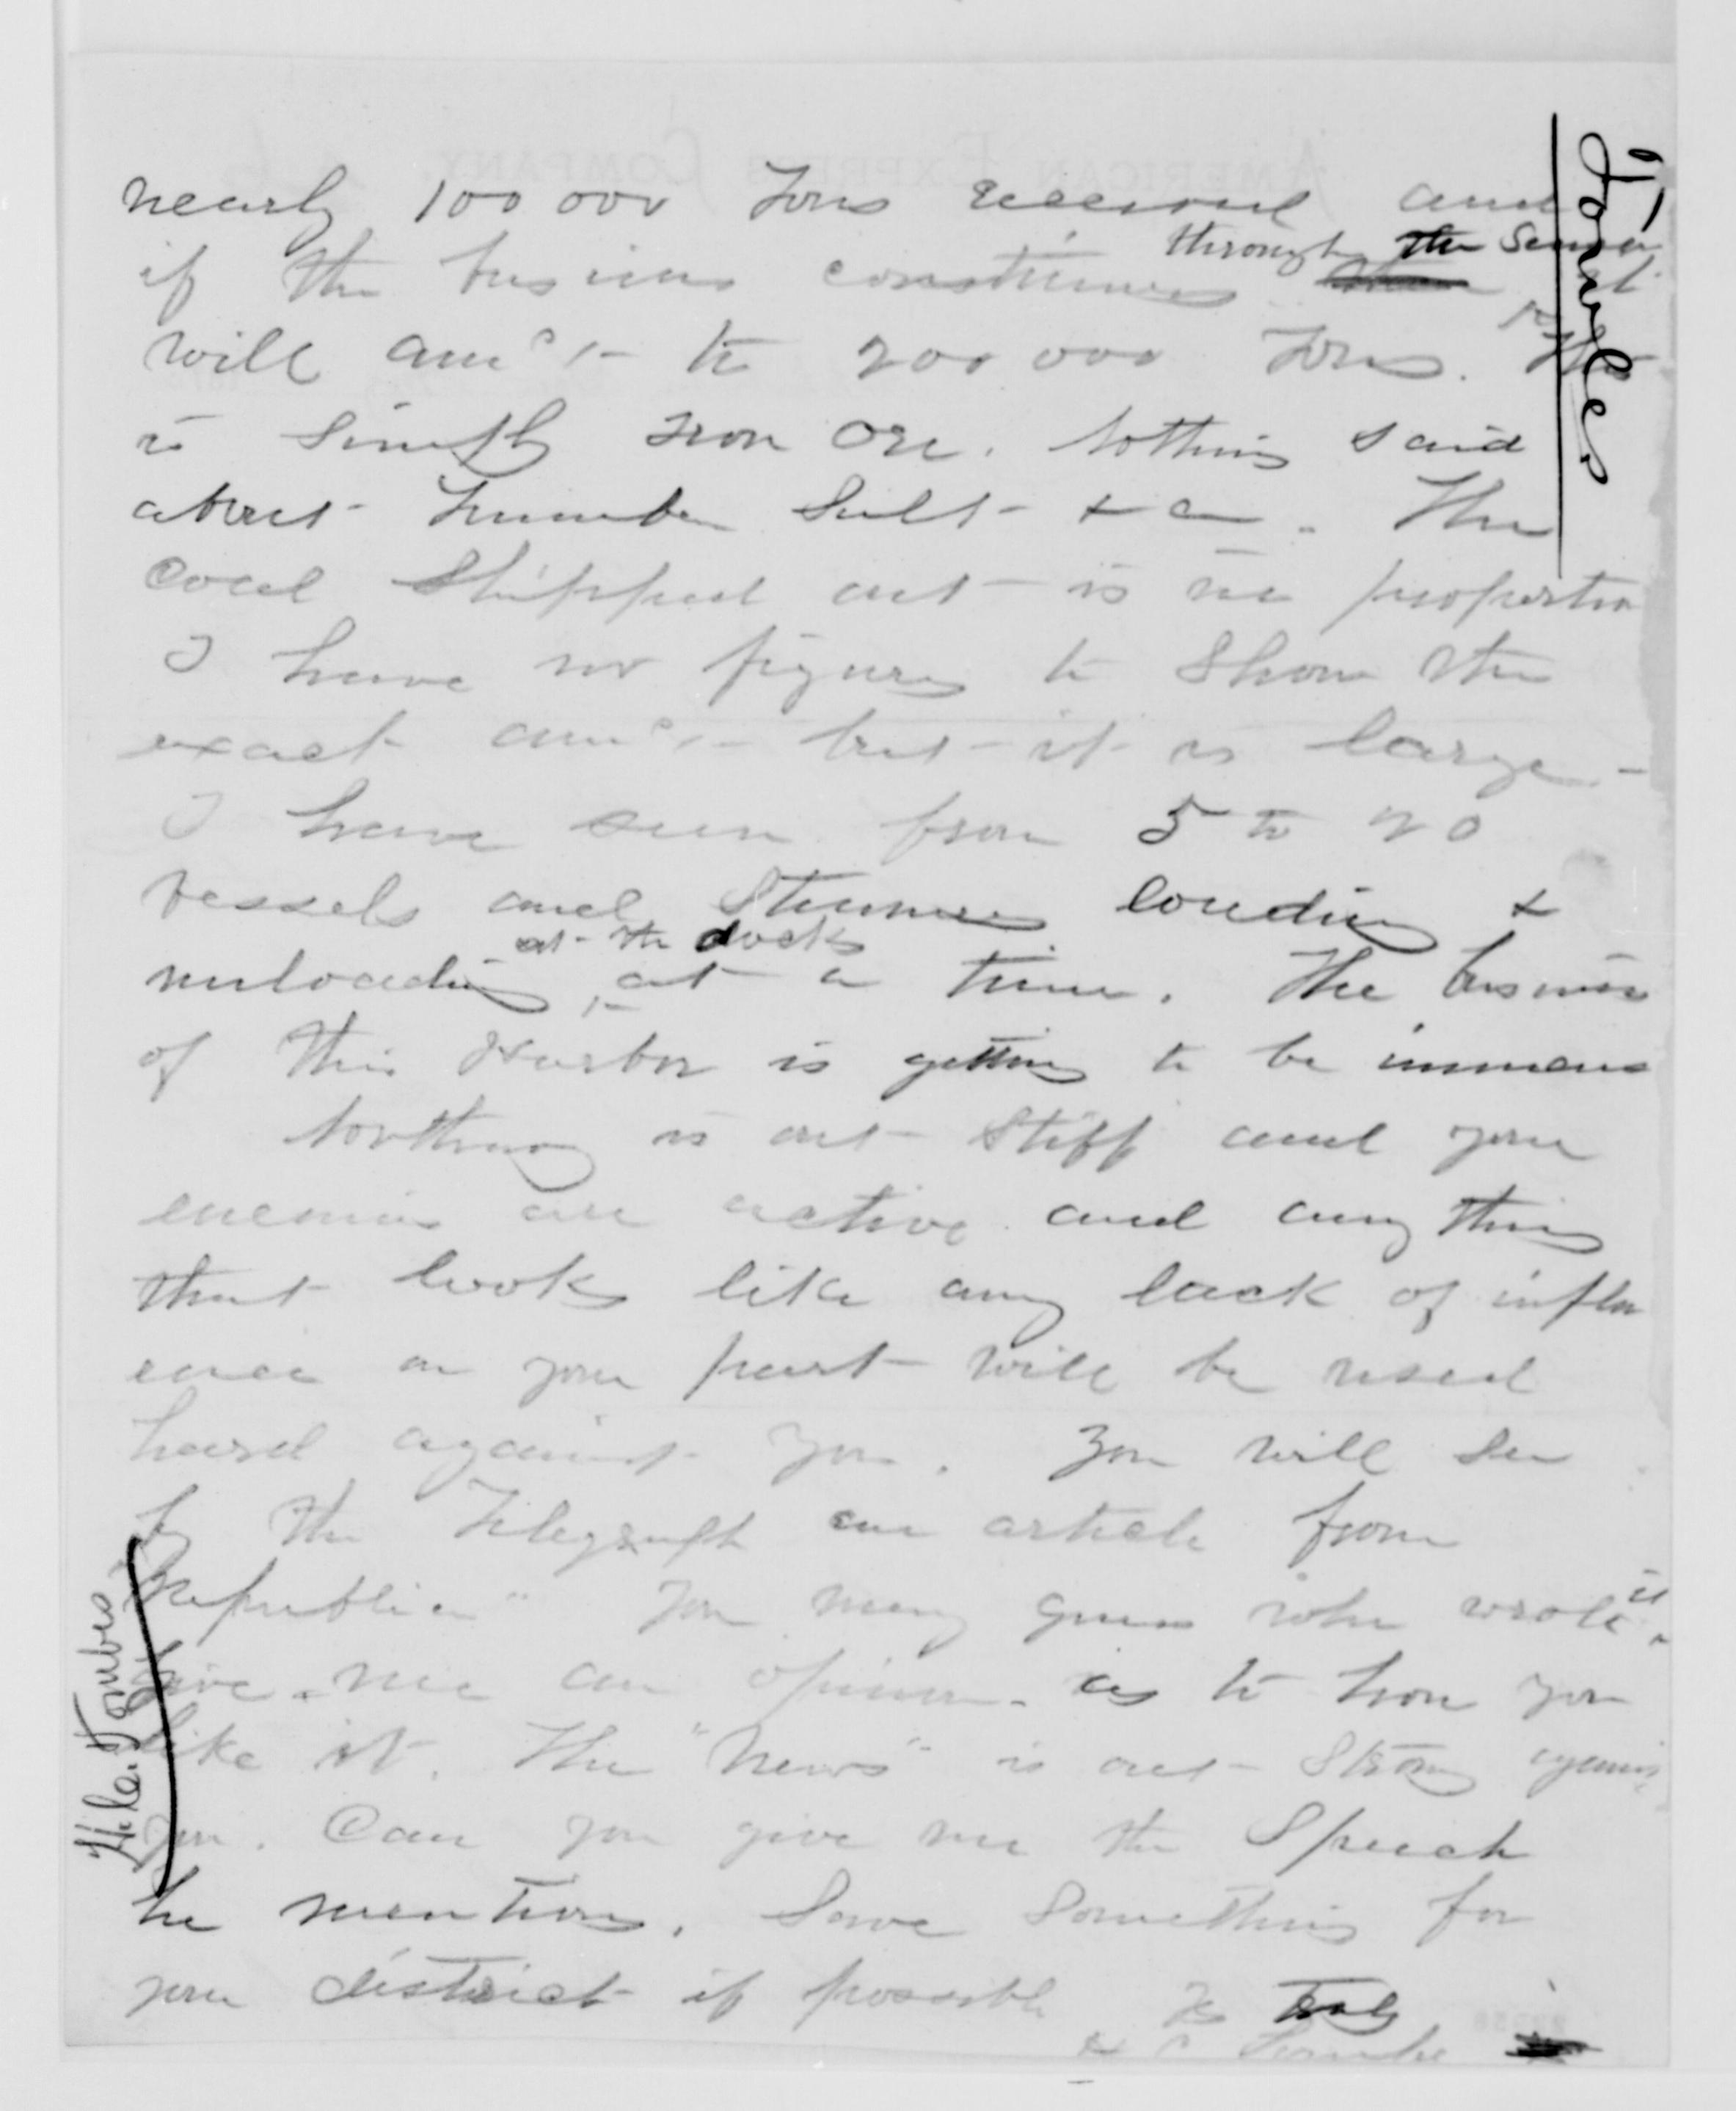 nearly 100 000 Tons received and
if the business continues through the Season it
will am't to 200 000 Tons. This
is simply Iron Ore. Nothing said
about Lumber Salt &c. The
Coal Shipped out is in proportion
I have no figures to Show the
exact am't but it is large -
I have seen from 5 to 20
vessels and Steamers loading &
unloading at the docks at a time. The business
of this Harbor is getting to be immense
Northway is out Stiff and your
enemies are active and any thing
that looks like any lack of influ
ence on your part will be used
hard against you. You will see
by the Telegraph an article from
"Republican" You may guess who wrote it.
Give me an opinion as to how you
like it. The "News" is out Strong against
you. Can you give me the Speech
he mentions. Save Something for
your district if possible Yrs Truly
H C Tombes
Tombes
H. C. Tombes